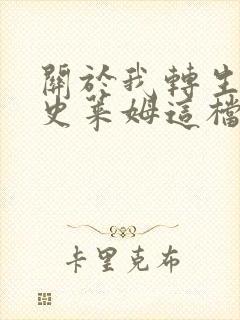 關於我轉生
史萊姆這檔
卡里克布